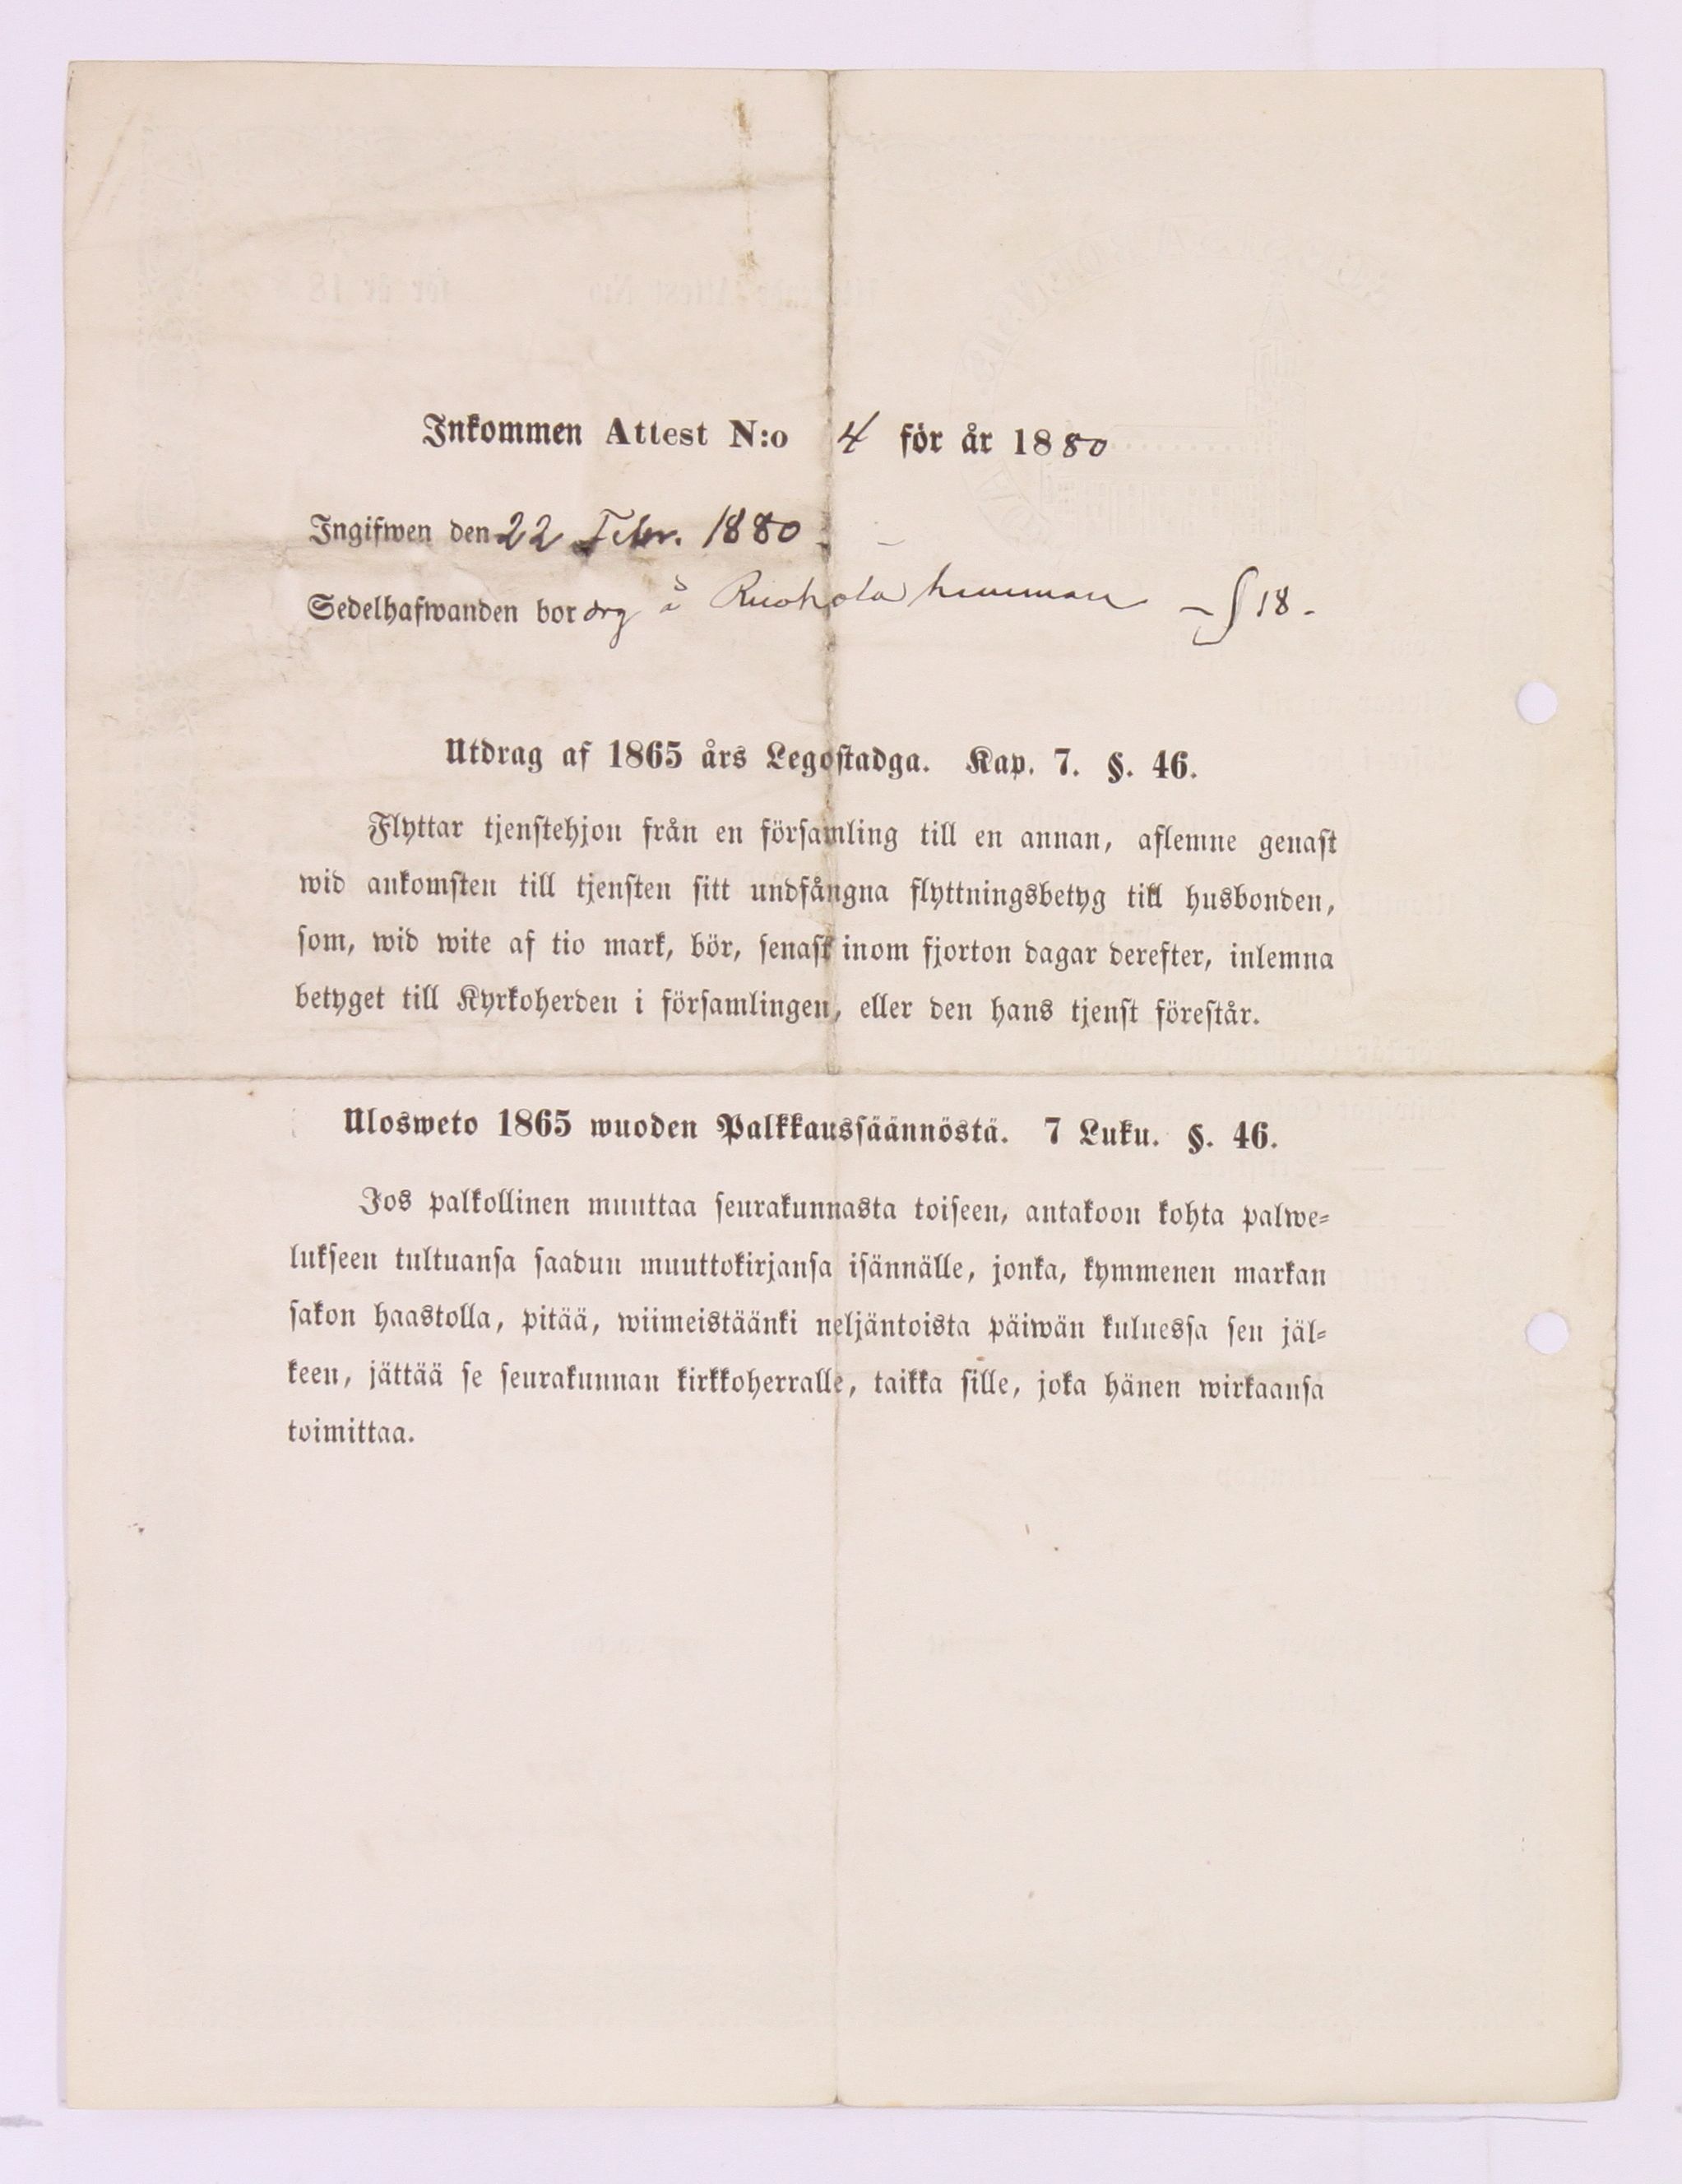 Inkommen Attest N:o 4 för år 1880
Ingifwen den 22 Febr. 1880.
Sedelhafwanden bor å Ruohola hemman – § 18.
Utdrag af 1865 års Legostadga. Kap. 7. §. 46.
Flyttar tjenstehjon från en församling till en annan, aflemne genast
wid ankomsten till tjensten sitt undfångna flyttningsbetyg till husbonden,
som, wid wite af tio mark, bör, senast inom fjorton dagar derefter, inlemna
betyget till Kyrkoherden i församlingen, eller den hans tjenst förestår.
Ulosweto 1865 wuoden Palkkaussäännöstä. 7 Luku. §. 46.
Jos palkollinen muuttaa seurakunnasta toiseen, antakoon kohta palwe=
lukseen tultuansa saadun muuttokirjansa isännälle, jonka, kymmenen markan
sakon haastolla, pitää, wiimeistäänki neljäntoista päiwän kuluessa sen jäl=
keen, jättää se seurakunnan kirkkoherralle, taikka sille, joka hänen wirkaansa
toimittaa.